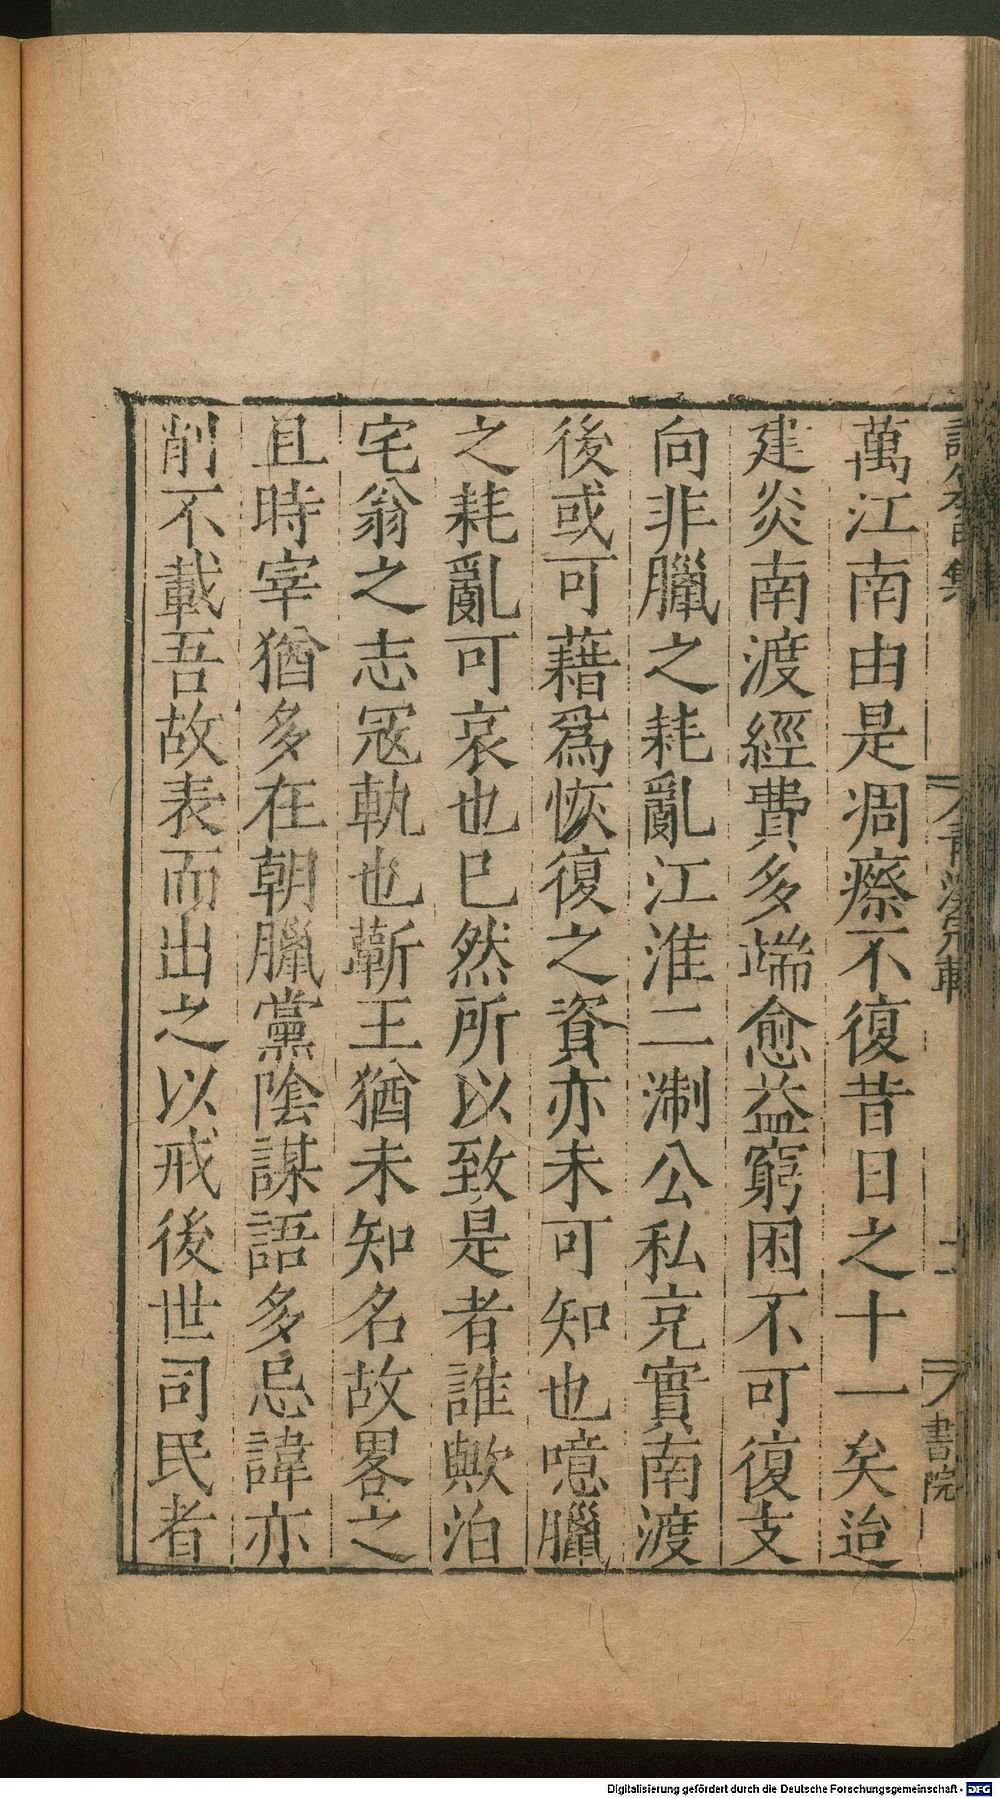 萬江南由是凋瘵不復昔日之十一矣迨
建炎南渡經費多端愈益窮困不可復支
向非臘之耗亂江淮二淛公私充實南渡
後或可藉爲恢復之資亦未可知也噫臘
之耗亂可哀也已然所以致是者誰歟泊
宅翁之志冦軌也蘄王猶未知名故畧之
且時宰猶多在朝臘黨陰謀語多忌諱亦
削不載吾故表而出之以戒後世司民者
書院
Digitalisierung gefördert durch die Deutsche Forschungsgemeinschaft - DFG